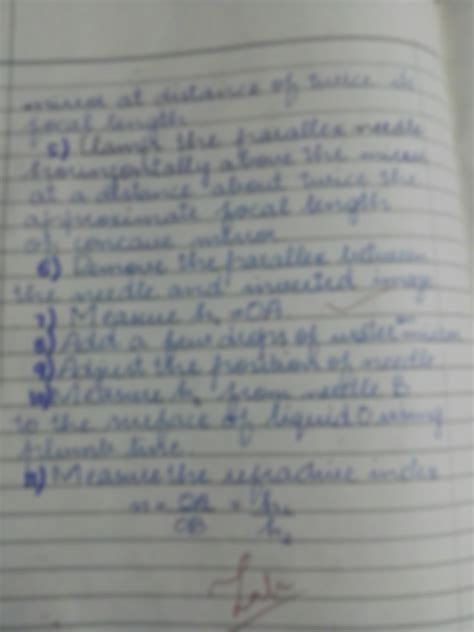 mirror at distance of twice its
focal length
5) Clamp the parallex needle
horizontally above the mirror
at a distance about twice the
approximate focal length
of concave mirror
6) Remove the parallex between
the needle and inverted image
7) Measure h₁ = OA
8) Add a few drops of water on mirror
9) Adjust the position of needle
10) Measure h₂ from needle B
to the surface of liquid O using
plumb line
11) Measure the refractive index
n = OA = h₁
OB h₂